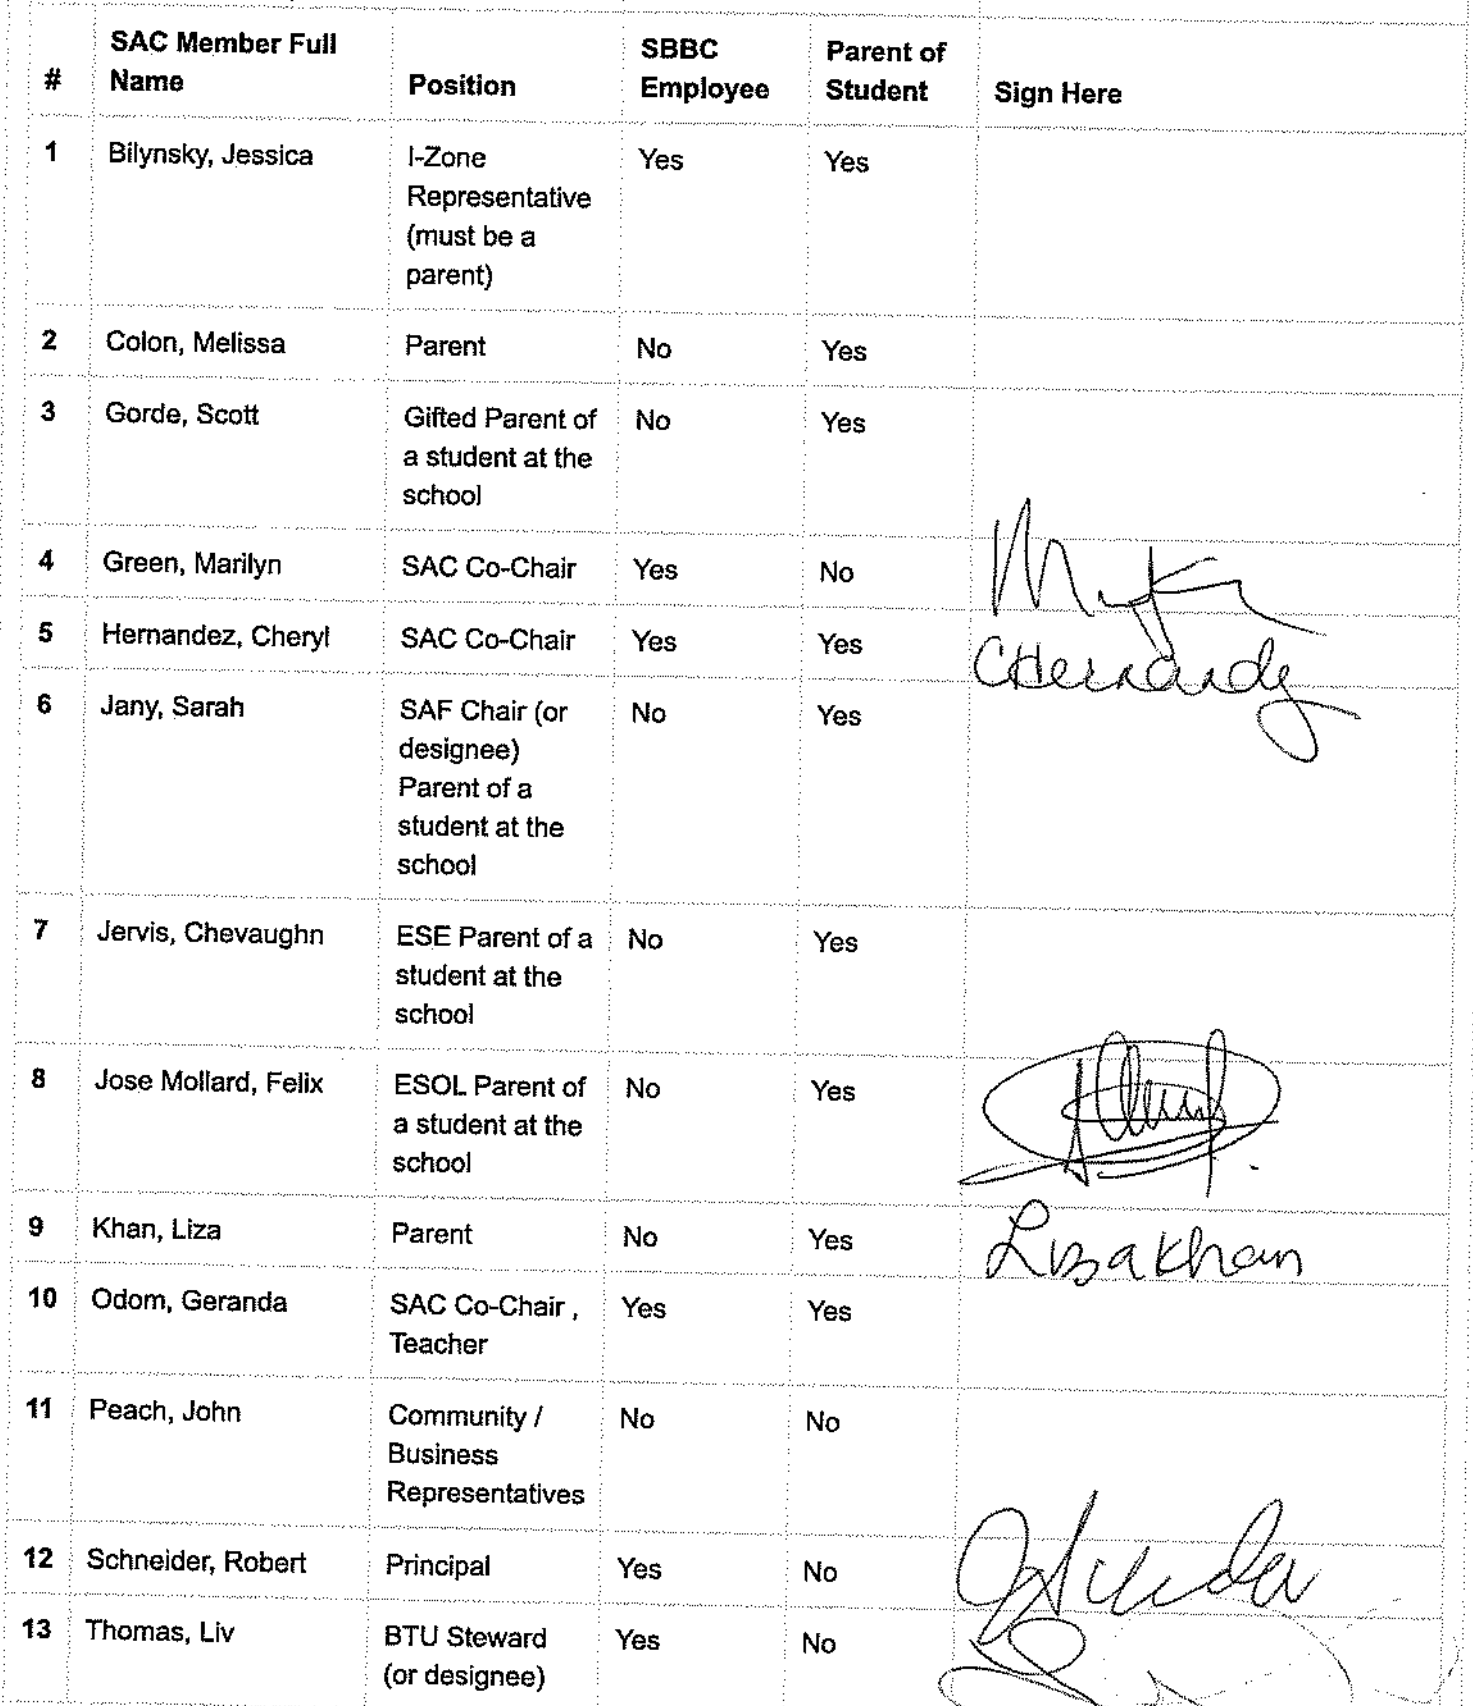 # SAC Member Full Name Position SBBC Employee Parent of Student Sign Here
1 Bilynsky, Jessica I-Zone Yes Yes
Representative
(must be a
parent)
2 Colon, Melissa Parent No Yes
3 Gorde, Scott Gifted Parent of No Yes
a student at the
school
4 Green, Marilyn SAC Co-Chair Yes No
5 Hernandez, Cheryl SAC Co-Chair Yes Yes CHernandez
6 Jany, Sarah SAF Chair (or No Yes
designee)
Parent of a
student at the
school
7 Jervis, Chevaughn ESE Parent of a No Yes
student at the
school
8 Jose Mollard, Felix ESOL Parent of No Yes
a student at the
school
9 Khan, Liza Parent No Yes Liza Khan
10 Odom, Geranda SAC Co-Chair , Yes Yes
Teacher
11 Peach, John Community / No No
Business
Representatives
12 Schneider, Robert Principal Yes No
13 Thomas, Liv BTU Steward Yes No
(or designee)